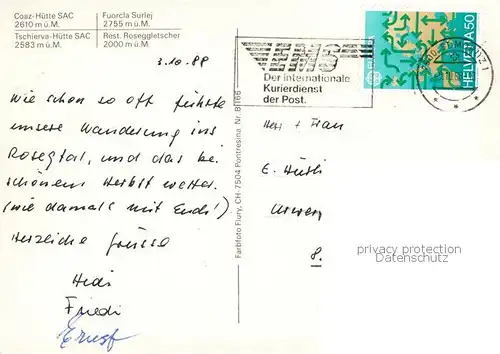 Coaz-Hütte SAC
2610 m ü.M.
Tschierva-Hütte SAC
2583 m ü.M.
Fuorcla Surlej
2755 m ü.M.
Rest. Roseggletscher
2000 m ü.M.
3.10.88
EMS
Der internationale
Kurierdienst
der Post.
HELVETIA 50
Wie schon so oft führte
unsere Wanderung ins
Rosegtal, und das bei
schönem Herbst wetter.
(wie damals mit Euch!)
Herzliche Grüsse
Hedi
Friedi
Ernst
Farbfoto Flury, CH-7504 Pontresina Nr. B 166
Herr + Frau
E.
8.
privacy protection
Zwecks Datenschutz